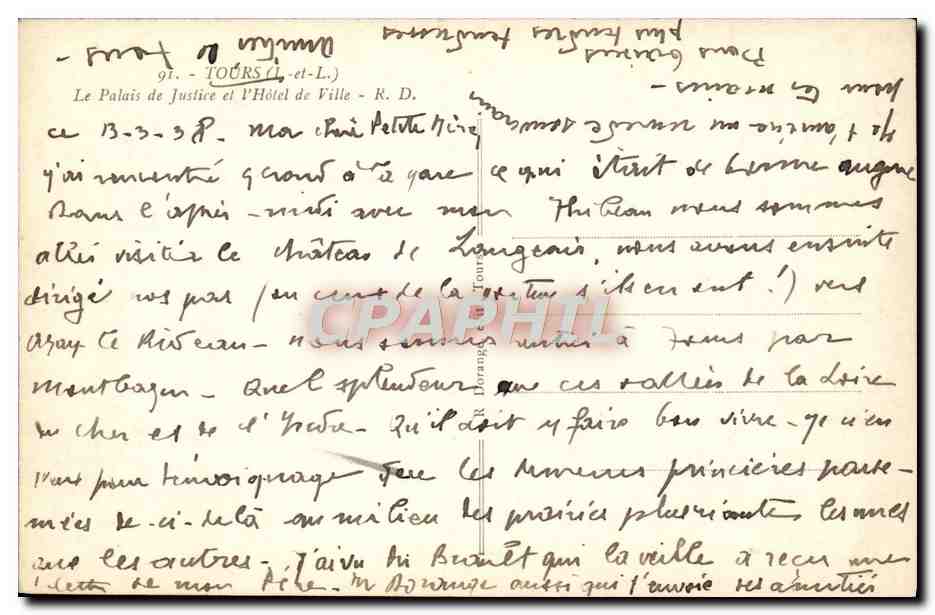 91. - TOURS (I.-et-L.)
Le Palais de Justice et l'Hôtel de Ville - R. D.
ce 13-3-38. Ma chère Petite Mère,
j'ai rencontré Grand à la gare ce qui était de bonne augure
Dans l'après-midi avec mon Thibeau nous sommes
allés visiter le château de Langeais, nous avons ensuite
dirigé nos pas (ou ceux de la voiture s'ils en ont!) vers
Azay le Rideau - nous sommes rentrés à Tours par
Montbazon - Quel splendeur que ces vallées de la Loire
du Cher et de l'Indre - Qu'il doit y faire bon vivre - Je n'en
veux pour témoignage que les demeures princières parse-
mées de-ci-de-là au milieu des prairies plus riantes les unes
que les autres - J'ai vu Mr Brault qui la veille a reçu une
lettre de mon Père - Mr Dorange aussi qui t'envoie ses amitiés
pour
Bons baisers
plus tendres tendresses
amitiés à tous -
R. Dorange, édit. Tours
CPAPHIL